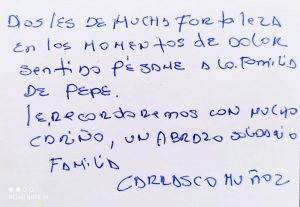 DIOS LES DE MUCHA FORTALEZA
EN LOS MOMENTOS DE DOLOR
SENTIDO PÉSAME A LA FAMILIA
DE PEPE.
LE RECORDAREMOS CON MUCHO
CARIÑO, UN ABRAZO
FAMILIA
CARRASCO MUÑOZ